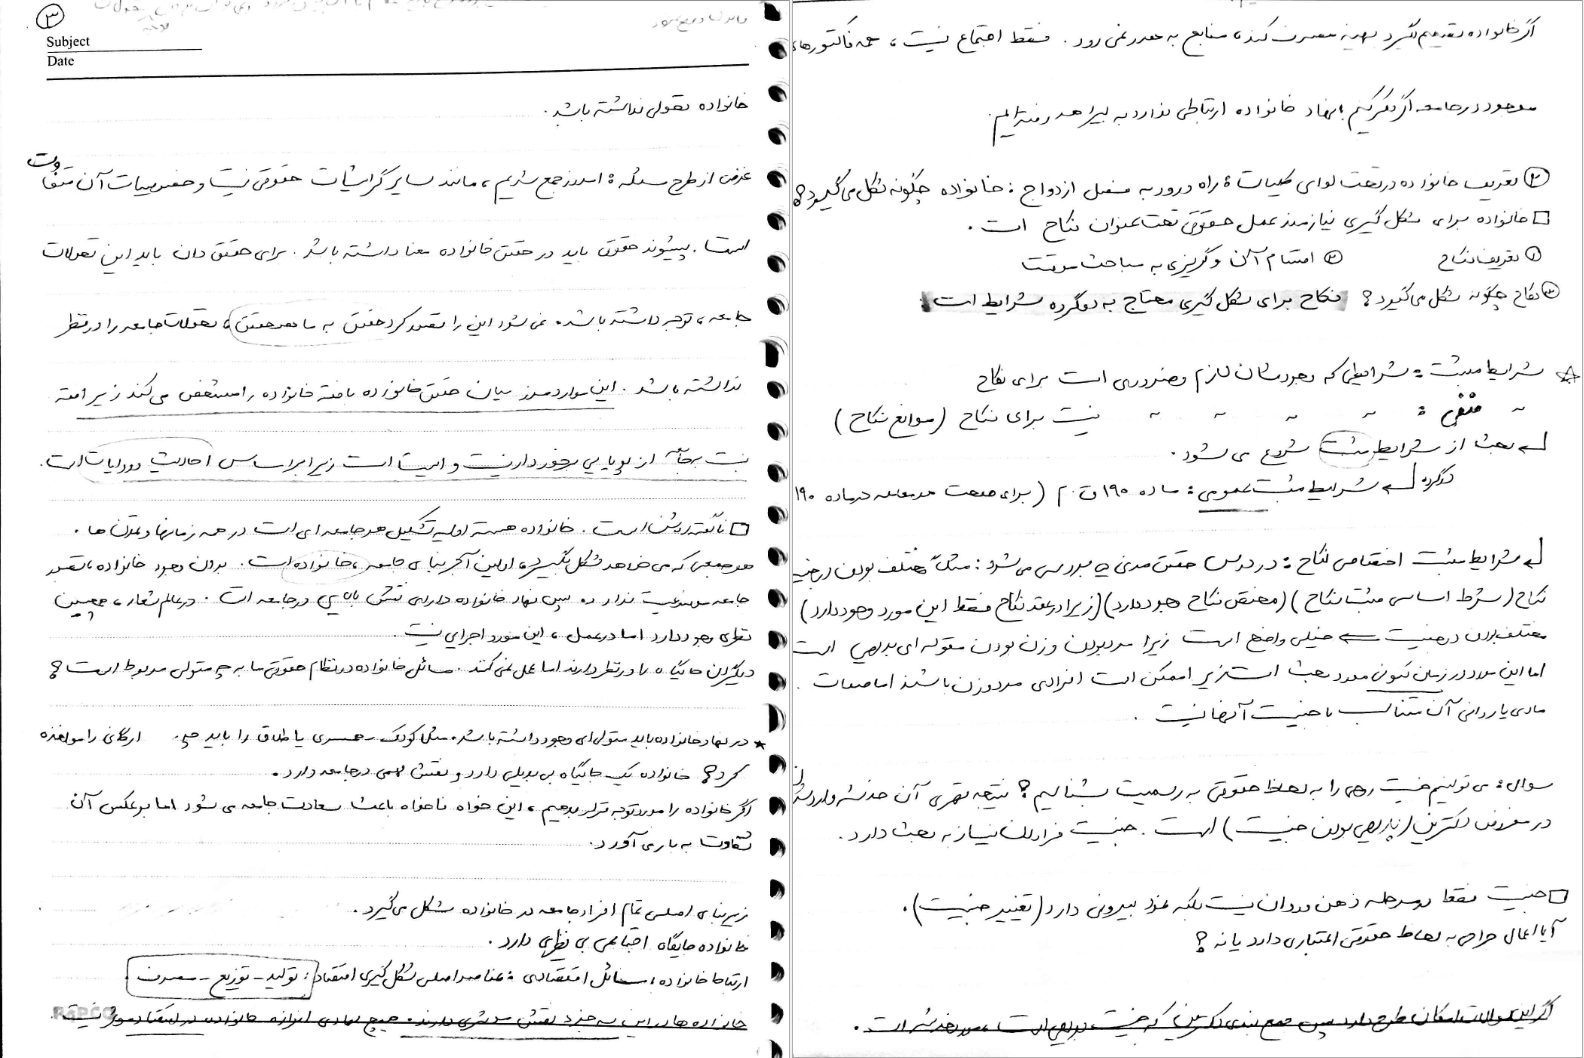 ۳
Subject
Date
خانواده تحولی نداشته باشد.
غرض از طرح مسئله: امروز جمع شدیم، مانند سایر گرایشات حقوقی نیست و خصوصیات آن متفاوت
است. پیشوند حقوق باید در حقوق خانواده معنا داشته باشد. برای حقوق دان باید این تحولات
جامعه، توجه داشته باشد. نمی شود این را تصور کرد حقوق به ما هو حقوق، تحولات جامعه را در نظر
نداشته باشد. این موارد مرز میان حقوق خانواده یافته خانواده را مشخص می کند زیرا فقه
نسبت به آن از پویایی برخوردار نیست و ایستا است زیرا بر اساس احادیث و روایات است.
ناگفته روشن است. خانواده هسته اولیه تشکیل هر جامعه ای است در همه زمانها و تمدن ها.
هر جمعی که می خواهد شکل بگیرد، اولین آجر بنای جامعه، خانواده است. بدون وجود خانواده، تصور
جامعه موضوعیت ندارد. پس نهاد خانواده دارای نقش بالایی در جامعه است. در عالم شعار، همچین
نظری وجود دارد اما در عمل، این مورد اجرایی نیست.
دیگران جایگاه را در نظر دارند اما عمل نمی کنند. مسائل خانواده در نظام حقوقی ما به چه متولی مربوط است؟
در نهاد خانواده باید متولی ای وجود داشته باشد. مثلا کودک همسری یا طلاق را باید چه ارگانی را مواخذه
کرد؟ خانواده یک جایگاه بی بدیلی دارد و نقش مهمی در جامعه دارد.
اگر خانواده را مورد توجه قرار بدهیم، این خواه ناخواه باعث سعادت جامعه می شود اما برعکس آن
شقاوت به بار می آورد.
زیربنای اصلی تمام افراد جامعه در خانواده شکل می گیرد.
خانواده جایگاه اجتماعی بی نظیری دارد.
ارتباط خانواده با مسائل اقتصادی: عناصر اصلی شکل گیری اقتصاد: تولید - توزیع - مصرف.
خانواده ها در این سه جزء نقش موثری دارند. هیچ نهادی اندازه خانواده در اقتصاد موثر نیست.
اگر خانواده تصمیم بگیرد بهینه مصرف کند، منابع به هدر نمی رود. فقط اجتماع نیست، همه فاکتورهای
موجود در جامعه اگر فکر کنیم با نهاد خانواده ارتباطی ندارد به بیراهه رفته ایم.
۲ تعریف خانواده در تحت لوای کلیات: راه ورود به مفصل ازدواج: خانواده چگونه شکل می گیرد؟
خانواده برای شکل گیری نیازمند عمل حقوقی تحت عنوان نکاح است.
۱ تعریف نکاح ۲ اقسام آن و گریزی به مباحث موقت
۳ نکاح چگونه شکل می گیرد؟ نکاح برای شکل گیری محتاج به دو گروه شرایط است:
شرایط مثبت: شرایطی که وجودشان لازم و ضروری است برای نکاح
〃 منفی: 〃 〃 〃 〃 نیست برای نکاح (موانع نکاح)
بحث از شرایط مثبت شروع می شود.
دو گروه شرایط مثبت عمومی: ماده ۱۹۰ ق.م (برای صحت هر معامله در ماده ۱۹۰
شرایط مثبت اختصاصی نکاح: در درس حقوق مدنی ۵ بررسی می شود: مثلاً مختلف بودن در جنسیت
نکاح (شرط اساسی مثبت نکاح) (مختص نکاح وجود دارد) (زیرا در عقد نکاح فقط این مورد وجود دارد)
مختلف بودن در جنسیت خیلی واضح است زیرا مرد بودن و زن بودن مقوله ای بدیهی است
اما این مورد در زمان کنونی مورد بحث است زیرا ممکن است افرادی مرد و زن باشند اما صفات
مادی یا روانی آن متناسب با جنسیت آنها نیست.
سوال: می توانیم جنسیت روحی را به لحاظ حقوقی به رسمیت بشناسیم؟ نتیجه قهری آن خدشه وارد شدن
در مفروض دکترین (بدیهی بودن جنسیت) است. جنسیت فرا روان نیاز به بحث دارد.
جنسیت فقط در مرحله ذهن و روان نیست بلکه نمود بیرونی دارد (تغییر جنسیت).
آیا اعمال جراحی به لحاظ حقوقی اعتباری دارد یا نه؟
اگر این سوالات امکان طرح دارد پس جمع بندی دکترین که جنسیت بدیهی است، مورد خدشه است.